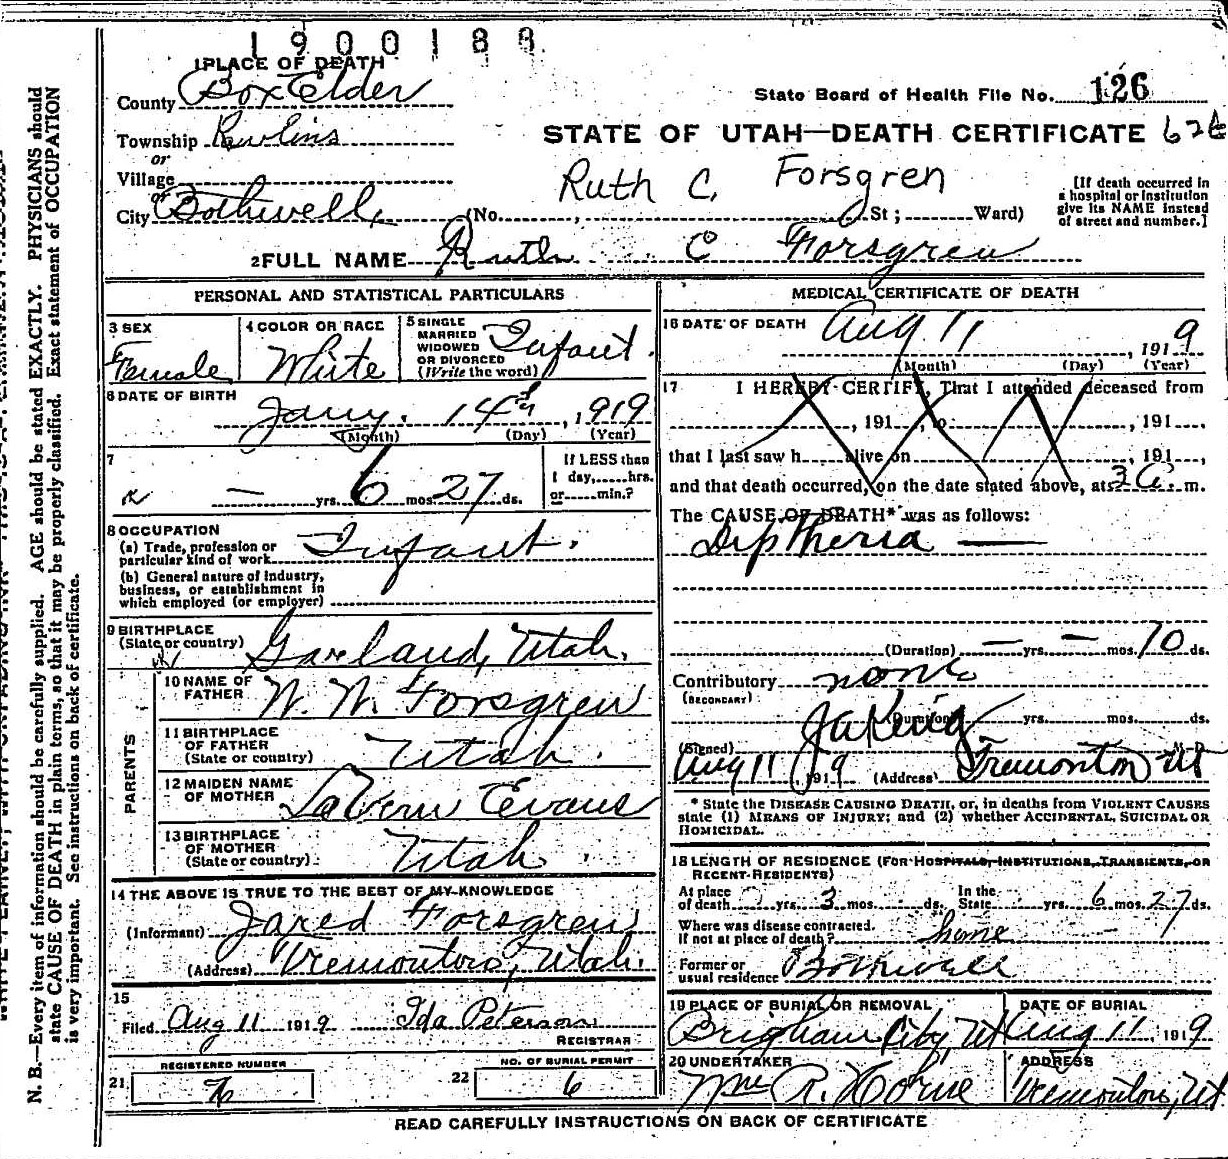 1900188
1 PLACE OF DEATH
County Box Elder
State Board of Health File No. 126
Township Rawlins
STATE OF UTAH—DEATH CERTIFICATE 62
or
Village
Ruth C. Forsgren
or
City Bothwell (No. , St; Ward)
[If death occurred in
a hospital or institution
give its NAME instead
of street and number.]
2 FULL NAME Ruth C Forsgren
PERSONAL AND STATISTICAL PARTICULARS
3 SEX
Female
4 COLOR OR RACE
White
5 SINGLE
MARRIED
WIDOWED
OR DIVORCED
(Write the word)
Infant.
6 DATE OF BIRTH
Jany. 14th, 1919
(Month) (Day) (Year)
7
— yrs. 6 mos. 27 ds.
If LESS than
1 day, hrs.
or min.?
8 OCCUPATION
(a) Trade, profession or
particular kind of work Infant.
(b) General nature of industry,
business, or establishment in
which employed (or employer)
9 BIRTHPLACE
(State or country) Garland, Utah.
PARENTS
10 NAME OF
FATHER W. W. Forsgren
11 BIRTHPLACE
OF FATHER
(State or country) Utah.
12 MAIDEN NAME
OF MOTHER LaVern Evans
13 BIRTHPLACE
OF MOTHER
(State or country) Utah.
14 THE ABOVE IS TRUE TO THE BEST OF MY KNOWLEDGE
(Informant) Jared Forsgren
(Address) Tremonton, Utah.
15
Filed Aug 11 1919 Ida Peterson
REGISTRAR
REGISTERED NUMBER
21
NO. OF BURIAL PERMIT
22 6
MEDICAL CERTIFICATE OF DEATH
16 DATE OF DEATH Aug 11, 1919
(Month) (Day) (Year)
17 I HEREBY CERTIFY, That I attended deceased from
, 191 , to , 191 ,
that I last saw h alive on , 191 ,
and that death occurred, on the date stated above, at 3 a. m.
The CAUSE OF DEATH* was as follows:
Diptheria —
(Duration) — yrs. — mos. 10 ds.
Contributory none
(SECONDARY)
(Duration) yrs. mos. ds.
(Signed)
Aug 11 1919 (Address) Tremonton Ut
* State the DISEASE CAUSING DEATH, or, in deaths from VIOLENT CAUSES
state (1) MEANS OF INJURY; and (2) whether ACCIDENTAL, SUICIDAL OR
HOMICIDAL.
18 LENGTH OF RESIDENCE (FOR HOSPITALS, INSTITUTIONS, TRANSIENTS, OR
RECENT RESIDENTS)
At place
of death yrs. 3 mos. ds.
In the
State yrs. 6 mos. 27 ds.
Where was disease contracted.
If not at place of death? home
Former or
usual residence Bothwell
19 PLACE OF BURIAL OR REMOVAL
Brigham City, Ut
DATE OF BURIAL
Aug 11, 1919
20 UNDERTAKER
Mrs R. Horne
ADDRESS
Tremonton, Ut.
READ CAREFULLY INSTRUCTIONS ON BACK OF CERTIFICATE
N. B.—Every item of information should be carefully supplied. AGE should be stated EXACTLY. PHYSICIANS should
state CAUSE OF DEATH in plain terms, so that it may be properly classified. Exact statement of OCCUPATION
is very important. See instructions on back of certificate.